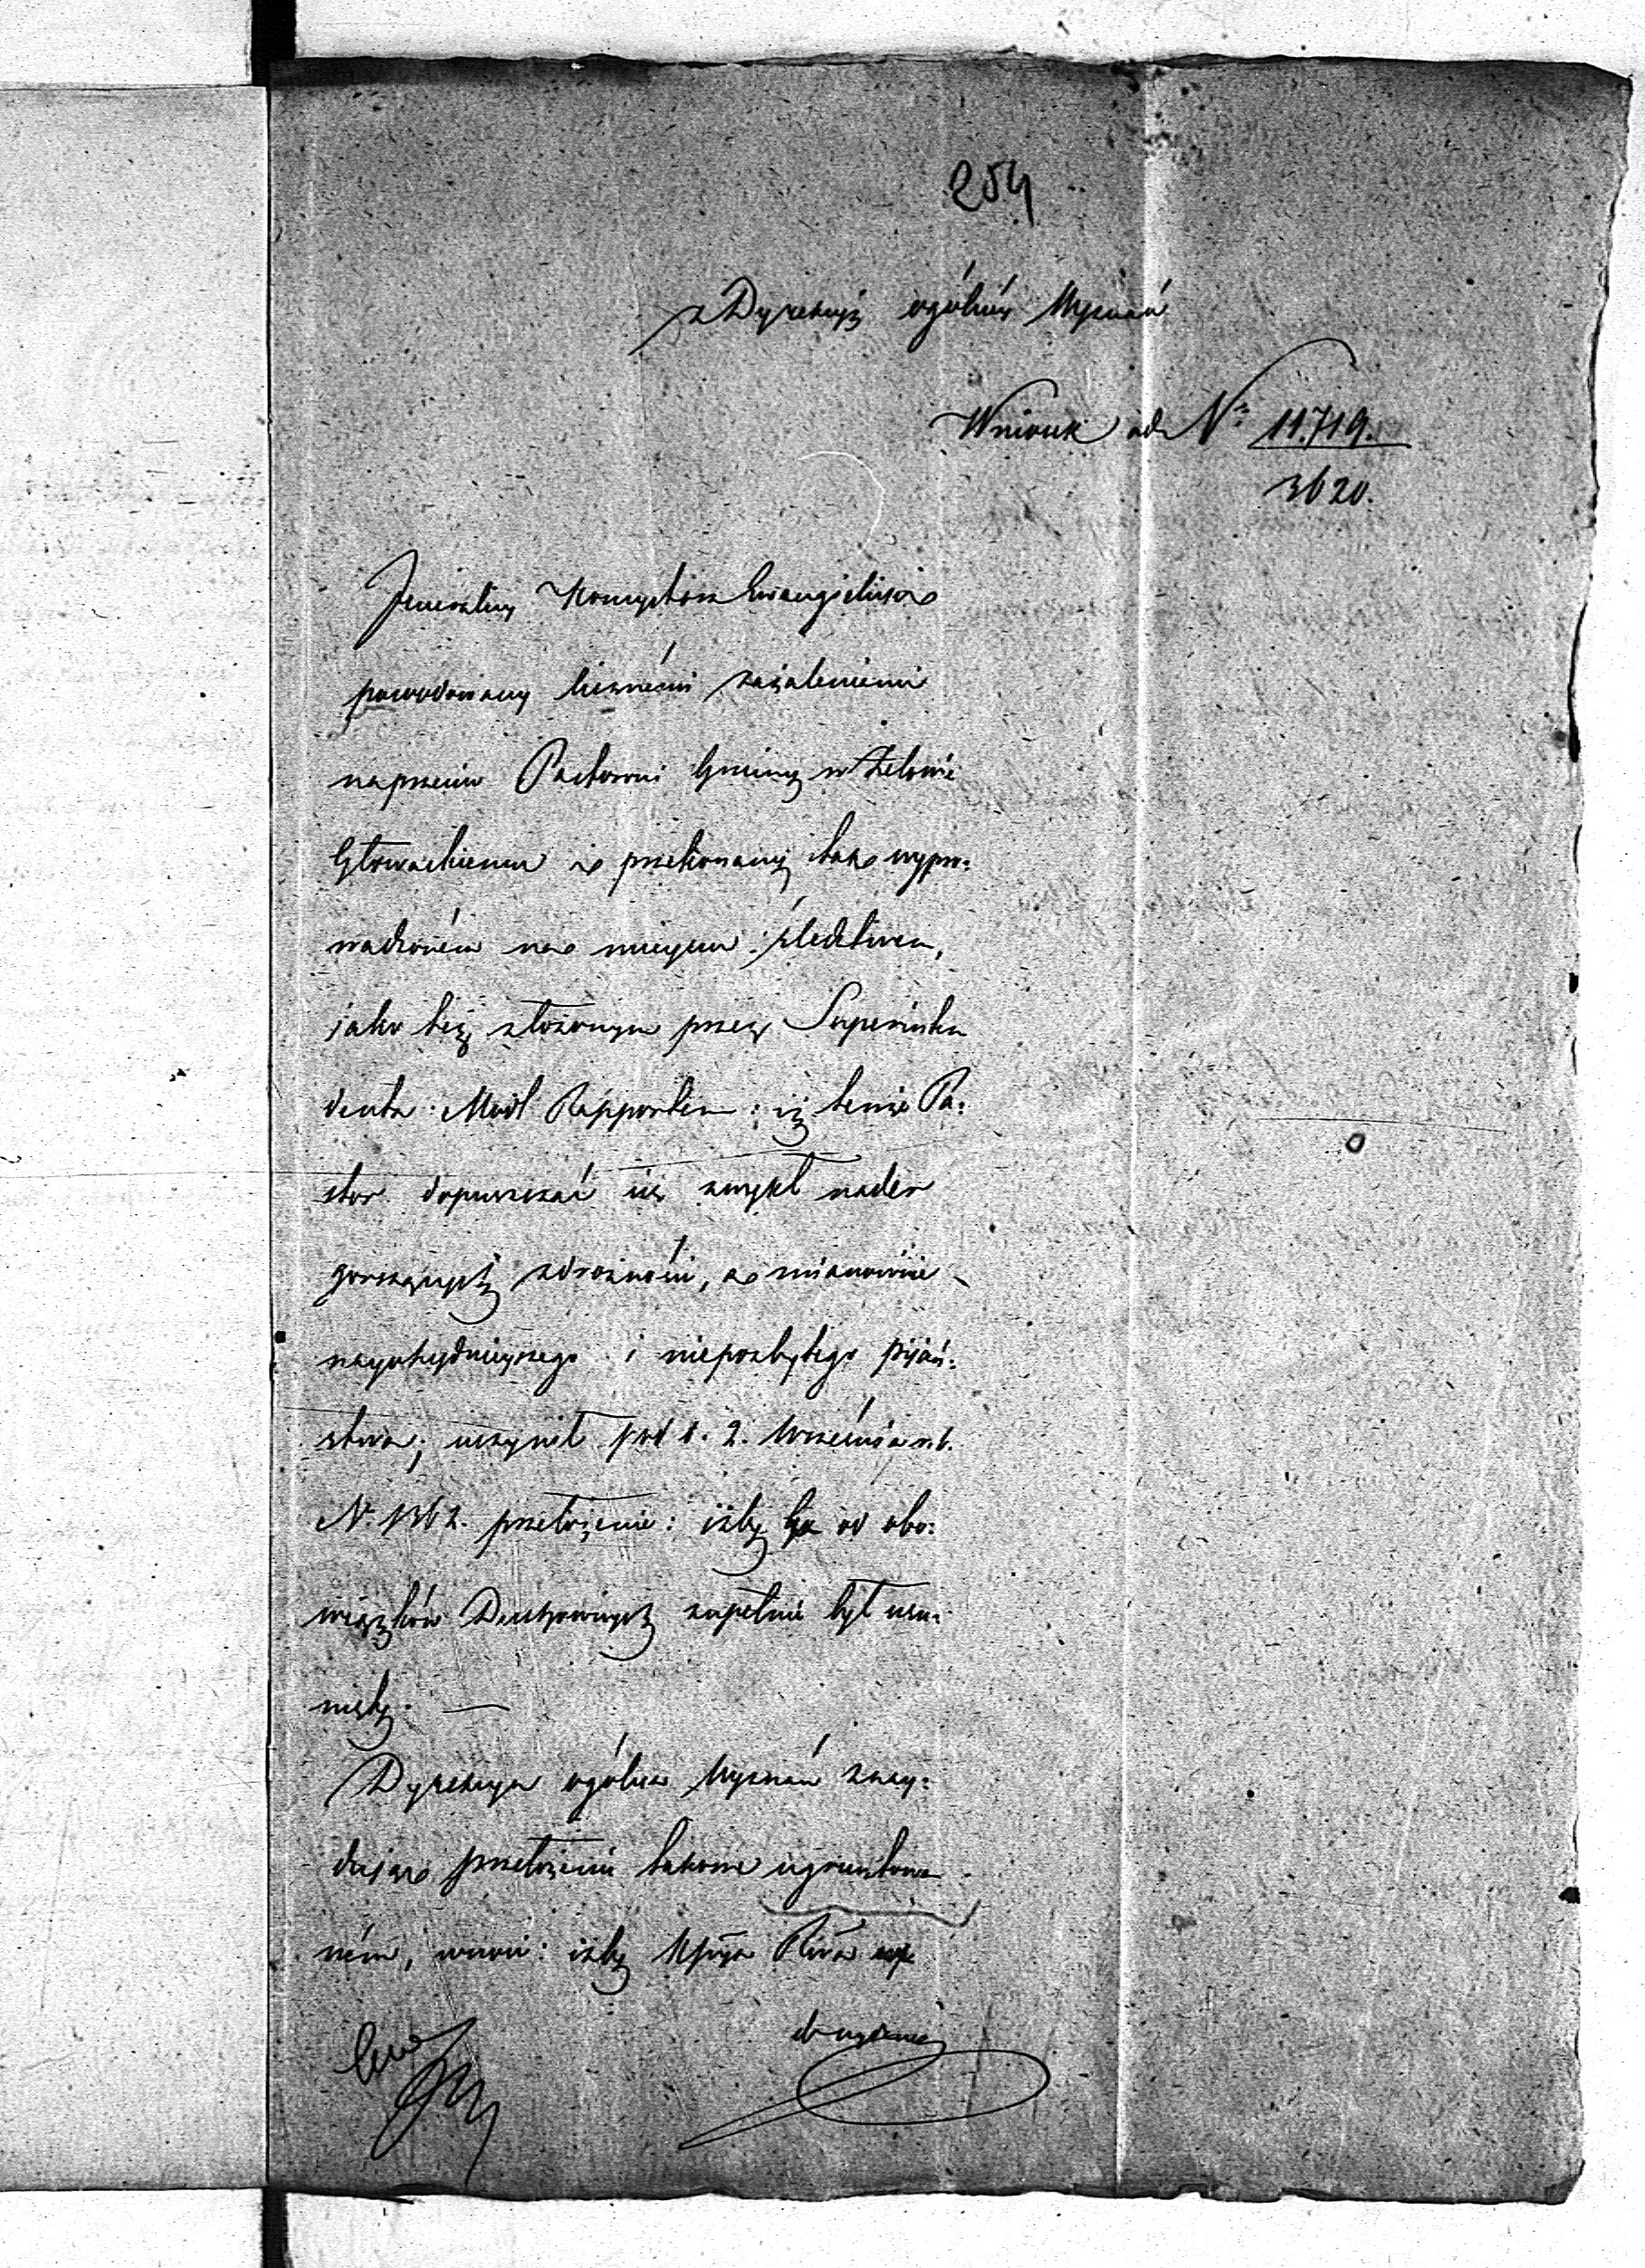 254
z Dyrekcyi ogólnéy Wyznań
Wniosek ad N° 11.719.
3620.
Jeneralny Konsystorz Ewangelicki
powodowany licznémi zażaleniami
naprzeciw Pastorowi Gminy w Zelowie
Głowackiemu i przekonany tak wypro:
wadzoném na mieyscu śledztwem,
jako też złożonym przez Superinten
denta Modl Rapportem: iż tenże Pa:
stor dopuszczać się zwykł nader
gorszących zdrożności, a mianowicie
nayohydnieyszego i niepozbytego pijań:
stwa; uczynił pod d. 2. Września r. b.
N. 1362. przełożenie: iżby od obo:
wiązków Duchownych zupełnie był usu:
nięty. —
Dyrekcya ogólna Wyznań znay:
dując przełożenie takowe ugruntowa
ném, wnosi: iżby